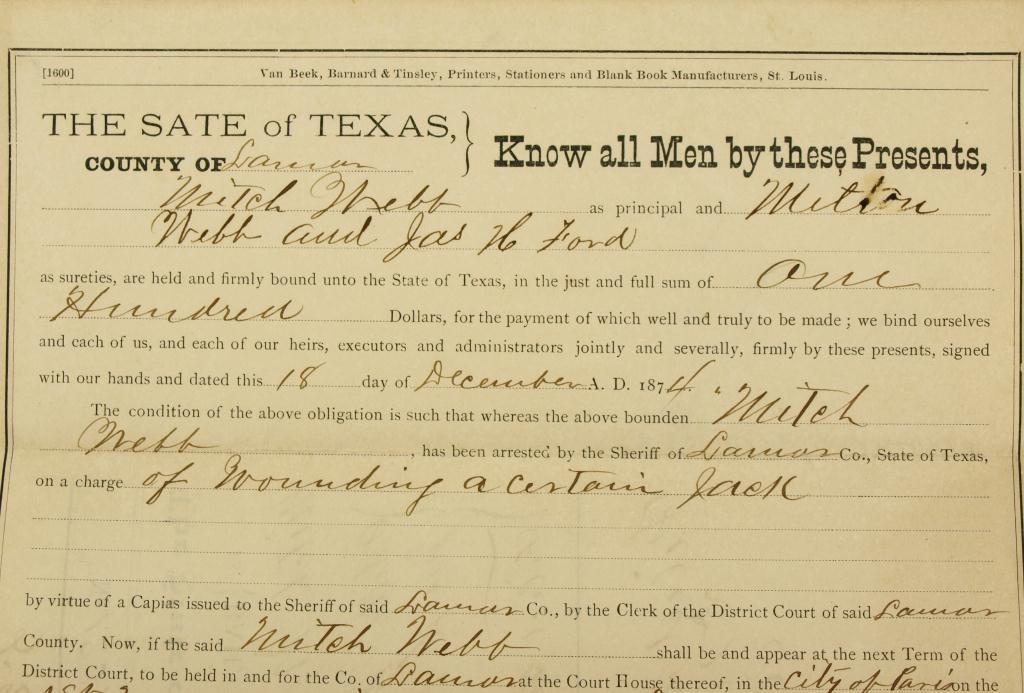 [1600] Van Beek, Barnard & Tinsley, Printers, Stationers and Blank Book Manufacturers, St. Louis.
THE SATE of TEXAS, } Know all Men by these Presents,
COUNTY OF Lamar
Mitch Webb as principal and
Webb and Jas H Ford
as sureties, are held and firmly bound unto the State of Texas, in the just and full sum of One
Hundred Dollars, for the payment of which well and truly to be made ; we bind ourselves
and each of us, and each of our heirs, executors and administrators jointly and severally, firmly by these presents, signed
with our hands and dated this 18 day of December A. D. 1874.
The condition of the above obligation is such that whereas the above bounden Mitch
Webb , has been arrested by the Sheriff of Lamar Co., State of Texas,
on a charge of Wounding a certain Jack
by virtue of a Capias issued to the Sheriff of said Lamar Co., by the Clerk of the District Court of said Lamar
County. Now, if the said Mitch Webb shall be and appear at the next Term of the
District Court, to be held in and for the Co. of Lamar at the Court House thereof, in the City of Paris on the